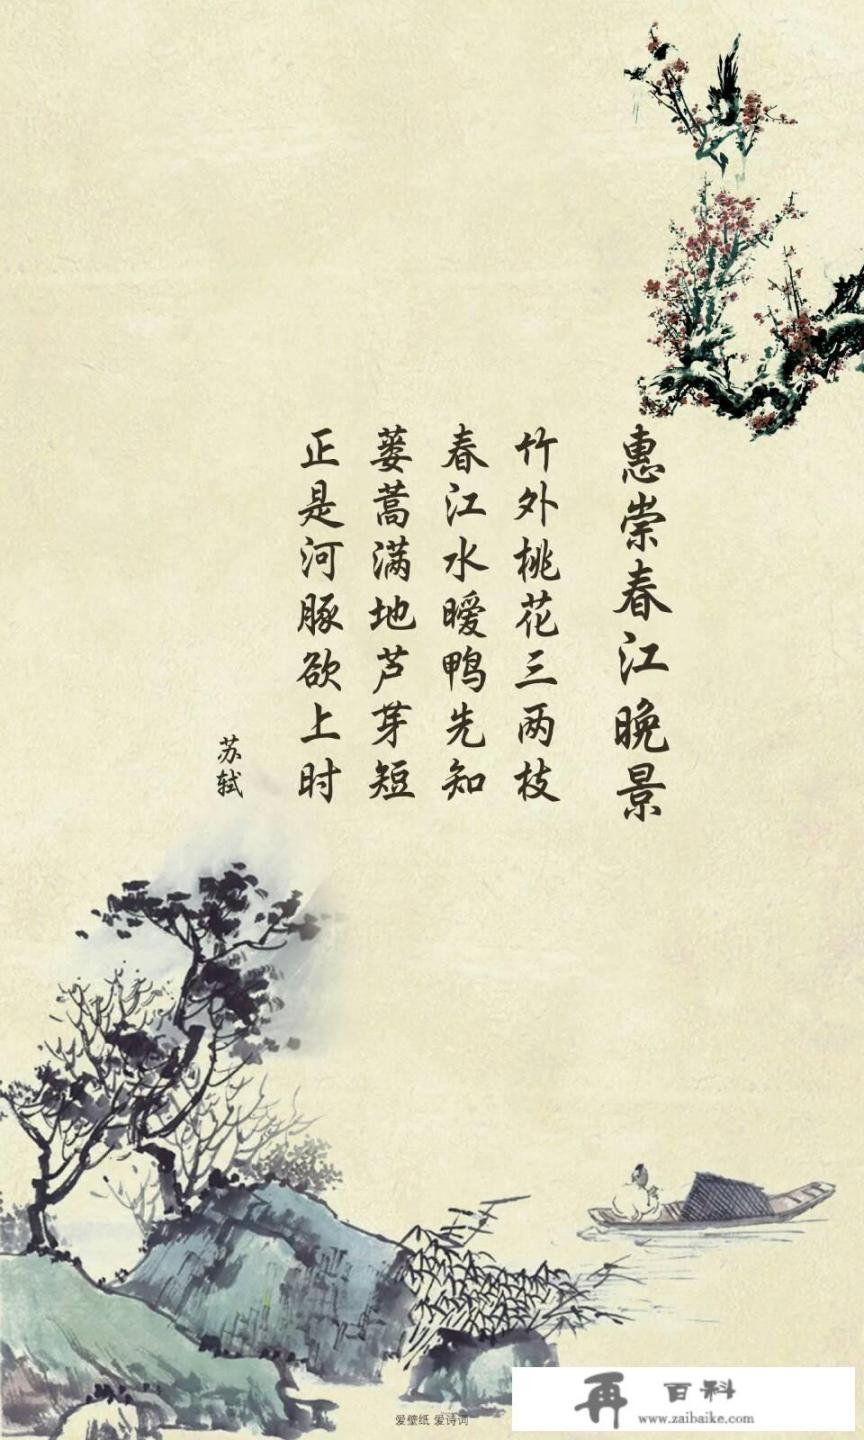 惠崇春江晚景
竹外桃花三两枝
春江水暧鸭先知
蒌蒿满地芦芽短
正是河豚欲上时
苏轼
爱壁纸 爱诗词
再 百科
www.zaibaike.com